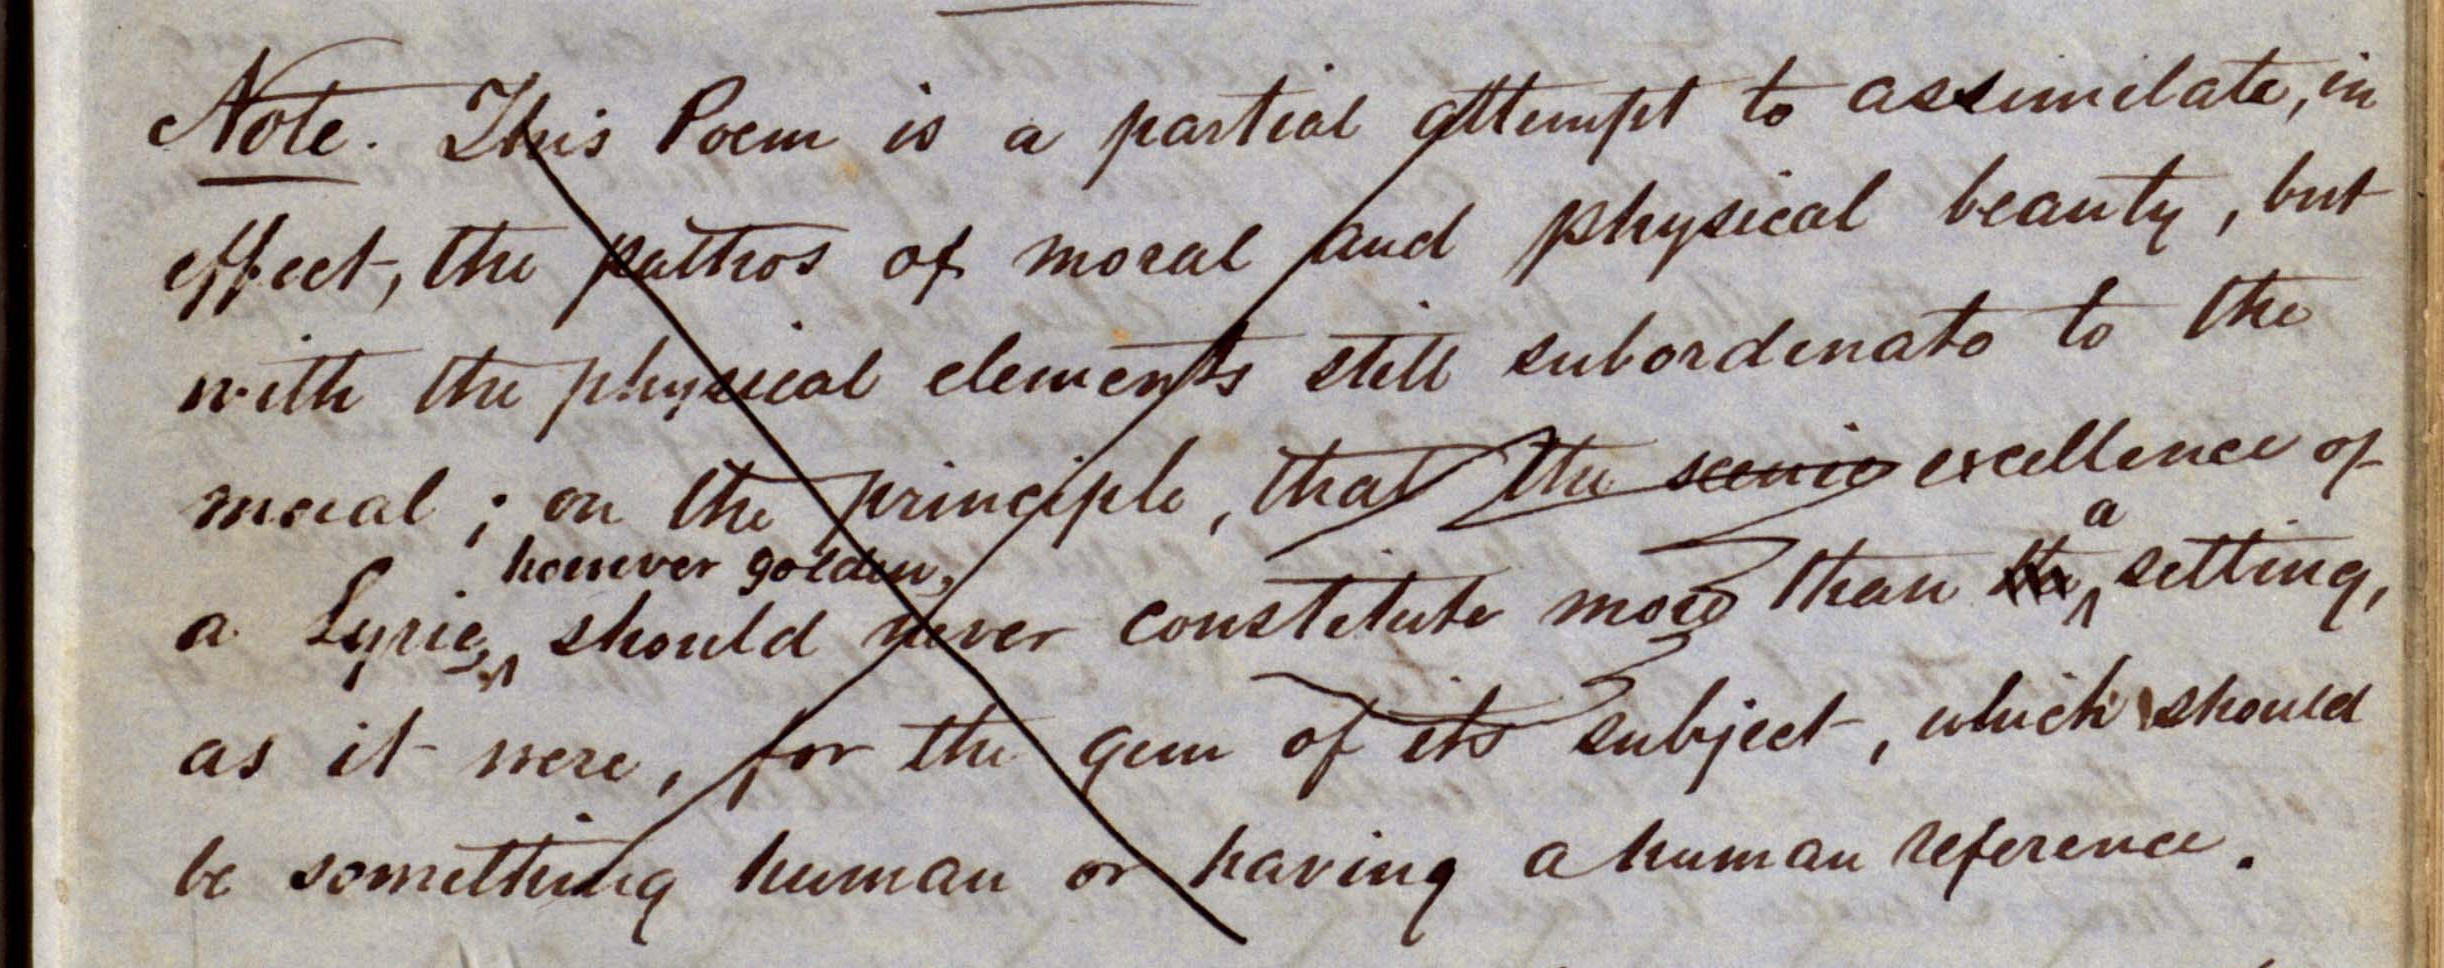 Note. This Poem is a partial attempt to assimilate, in
effect, the pathos of moral and physical beauty, but
with the physical elements still subordinate to the
moral; on the principle, that the scenic excellence of
a
however golden,
a Lyric, should never constitute more than the setting,
as it were, for the gem of its subject, which should
be something human or having a human reference.